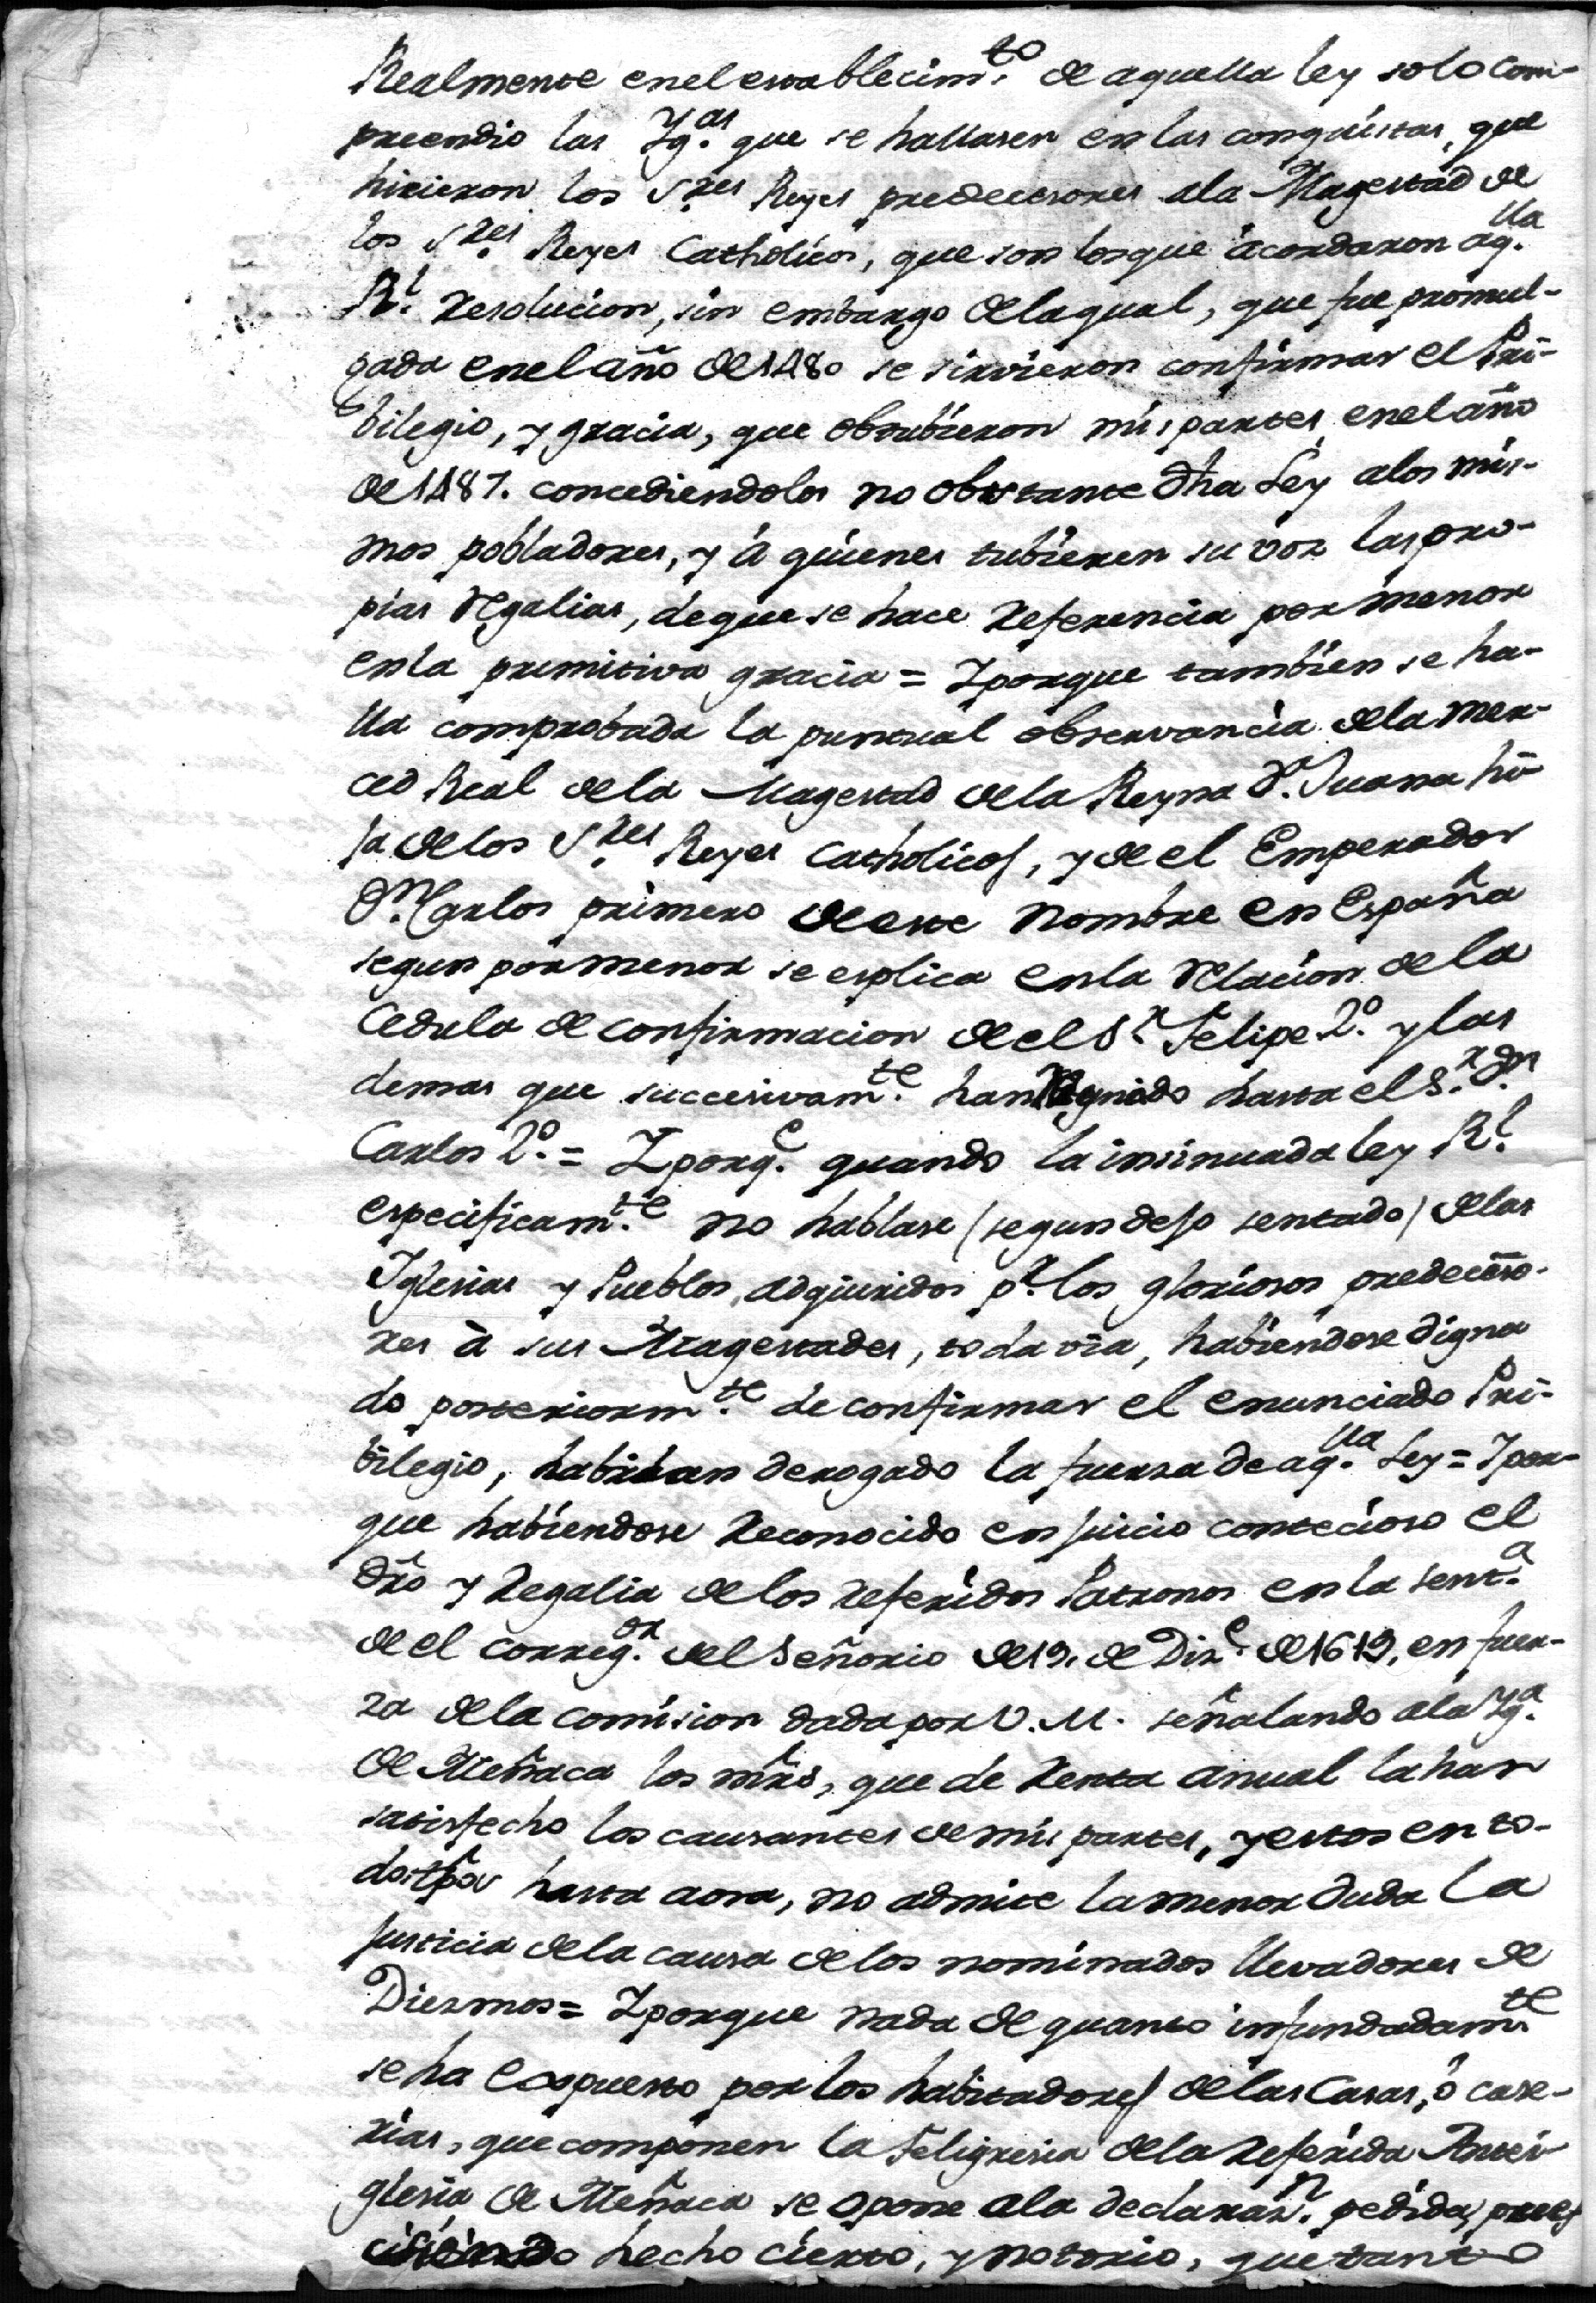 Realmente enel establecim.to de aquella ley solo com-
preendio las Yg.as que se hallasen en las conquistas, que
hicieron los S.res Reyes predecesores ala Magestad de
los S.res Reyes Catholicos, que son losque acordaron aq.lla
R.l resolucion, sin embargo dela qual, que fue promul-
gada enel año de 1480 se sirvieron confirmar el Pri-
bilegio, y gracia, que obtubieron mis partes, enel año
de 1487. concediendolos no obstante dha Ley alos mis-
mos pobladores, y á quienes tubieren su voz las pro-
pias regalias, deque se hace referencia por menor
enla primitiva gracia = Yporque tambien se ha-
lla comprobada la puntual observancia dela mer-
ced Real dela Magestad dela Reyna D.a Juana hi-
ja delos S.res Reyes catholicos, y de el Emperador
D.n Carlos primero de este nombre en España
segun por menor se esplica enla relacion dela
Cedula de confirmacion de el S.r Felipe 2.o y las
demas que succesivam.te han Reynado hasta el S.r D.n
Carlos 2.o = Yporq.e quando la insinuada ley R.l
especificam.te no hablase (segun dejo sentado) delas
Iglesias y Pueblos, adquiridos p.r los gloriosos predeceso-
res à sus Magestades, toda via, habiendose digna
do posteriorm.te de confirmar el enunciado Pri-
bilegio, habrian derogado la fuerza de aq.lla Ley = Ypor-
que habiendose reconocido en juicio contecioso el
dro y Regalia delos referidos Patronos en la sent.a
de el correg.or del Señorio de 19. de Diz.e de 1619, en fuer-
za dela comision dada por V. M. señalando ala Yg.a
de Meñaca los mrs, que de renta anual la han
satisfecho los causantes de mis partes, y estos en to-
do tpo hasta aora, no admite la menor duda la
justicia dela causa delos nominados llevadores de
Diezmos = Yporque nada de quanto infundadam.te
se ha expuesto por los habitadores delas Casas, ó case-
rias, que componen la Feligresia dela referida Antei-
glesia de Meñaca se opone ala declaraz.n pedida, pues
siendo hecho cierto, y notorio, que tanto